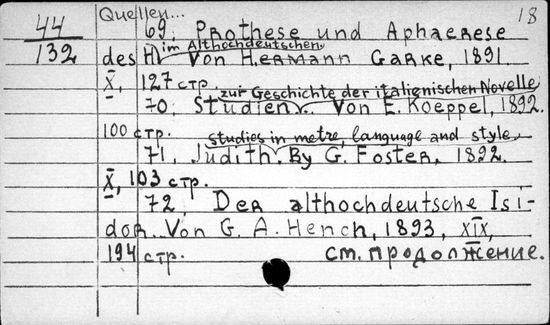 Quellen... 18
44
132
69. Prothese und Aphaerese
des H im Althochdeutschen. Von Hermann Garke, 1891.
X, 127 стр.
zur Geschichte der italienischen Novelle
70. Studien. Von E. Koeppel, 1892.
100 стр.
studies in metre, language and style.
71. Judith. By G. Foster, 1892.
X, 103 стр.
72. Der althochdeutsche Isi-
dor. Von G. A. Hench, 1893, XIX,
194 стр. см. продолжение.